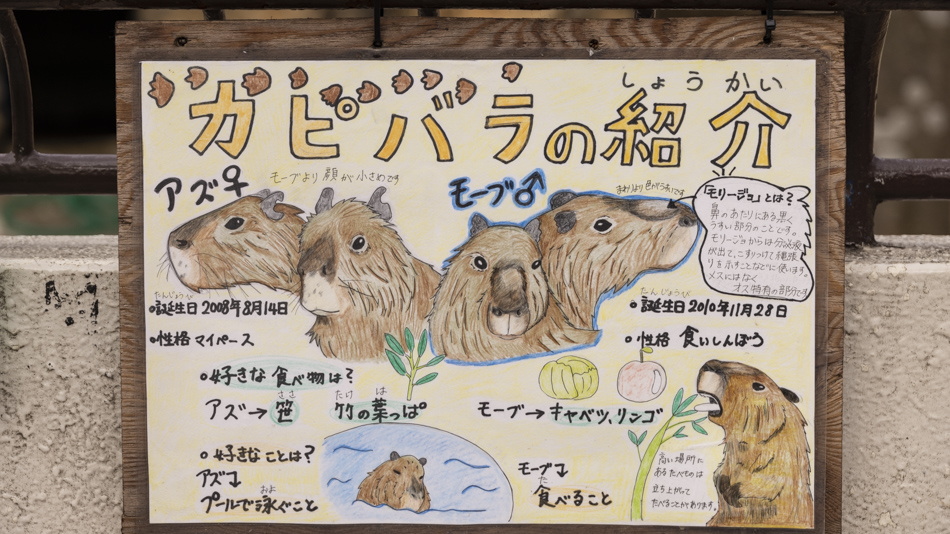 しょうかい
カピバラの紹介
アズ♀
モーブより顔が小さめです
モーブ♂
まわりより色がうすいです
「モリージョ」とは?
鼻のあたりにある黒く
うすい部分のことです。
モリージョからは分泌液
が出て、こすりつけて縄張
りを示すことなどに使います。
メスにはなく
オス特有の部分です
たんじょうび
•誕生日 2008年8月14日
•性格 マイペース
たんじょうび
•誕生日 2010年11月28日
•性格 食いしんぼう
•好きな食べ物は?
ささ たけ は
アズ→笹 竹の葉っぱ
モーブ→キャベツ、リンゴ
•好きなことは?
アズ↓
およ
プールで泳ぐこと
モーブ↓
た
食べること
高い場所に
あるたべものは
立ち上がって
たべることがあります。